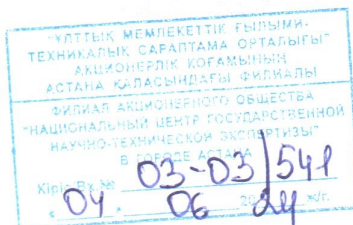 "ҰЛТТЫҚ МЕМЛЕКЕТТІК ҒЫЛЫМИ-
ТЕХНИКАЛЫҚ САРАПТАМА ОРТАЛЫҒЫ"
АКЦИОНЕРЛІК ҚОҒАМЫНЫҢ
АСТАНА ҚАЛАСЫНДАҒЫ ФИЛИАЛЫ
ФИЛИАЛ АКЦИОНЕРНОГО ОБЩЕСТВА
"НАЦИОНАЛЬНЫЙ ЦЕНТР ГОСУДАРСТВЕННОЙ
НАУЧНО-ТЕХНИЧЕСКОЙ ЭКСПЕРТИЗЫ"
В ГОРОДЕ АСТАНА
Кіріс/Вх.№ 03-03/541
«04» 06 2024 ж/г.